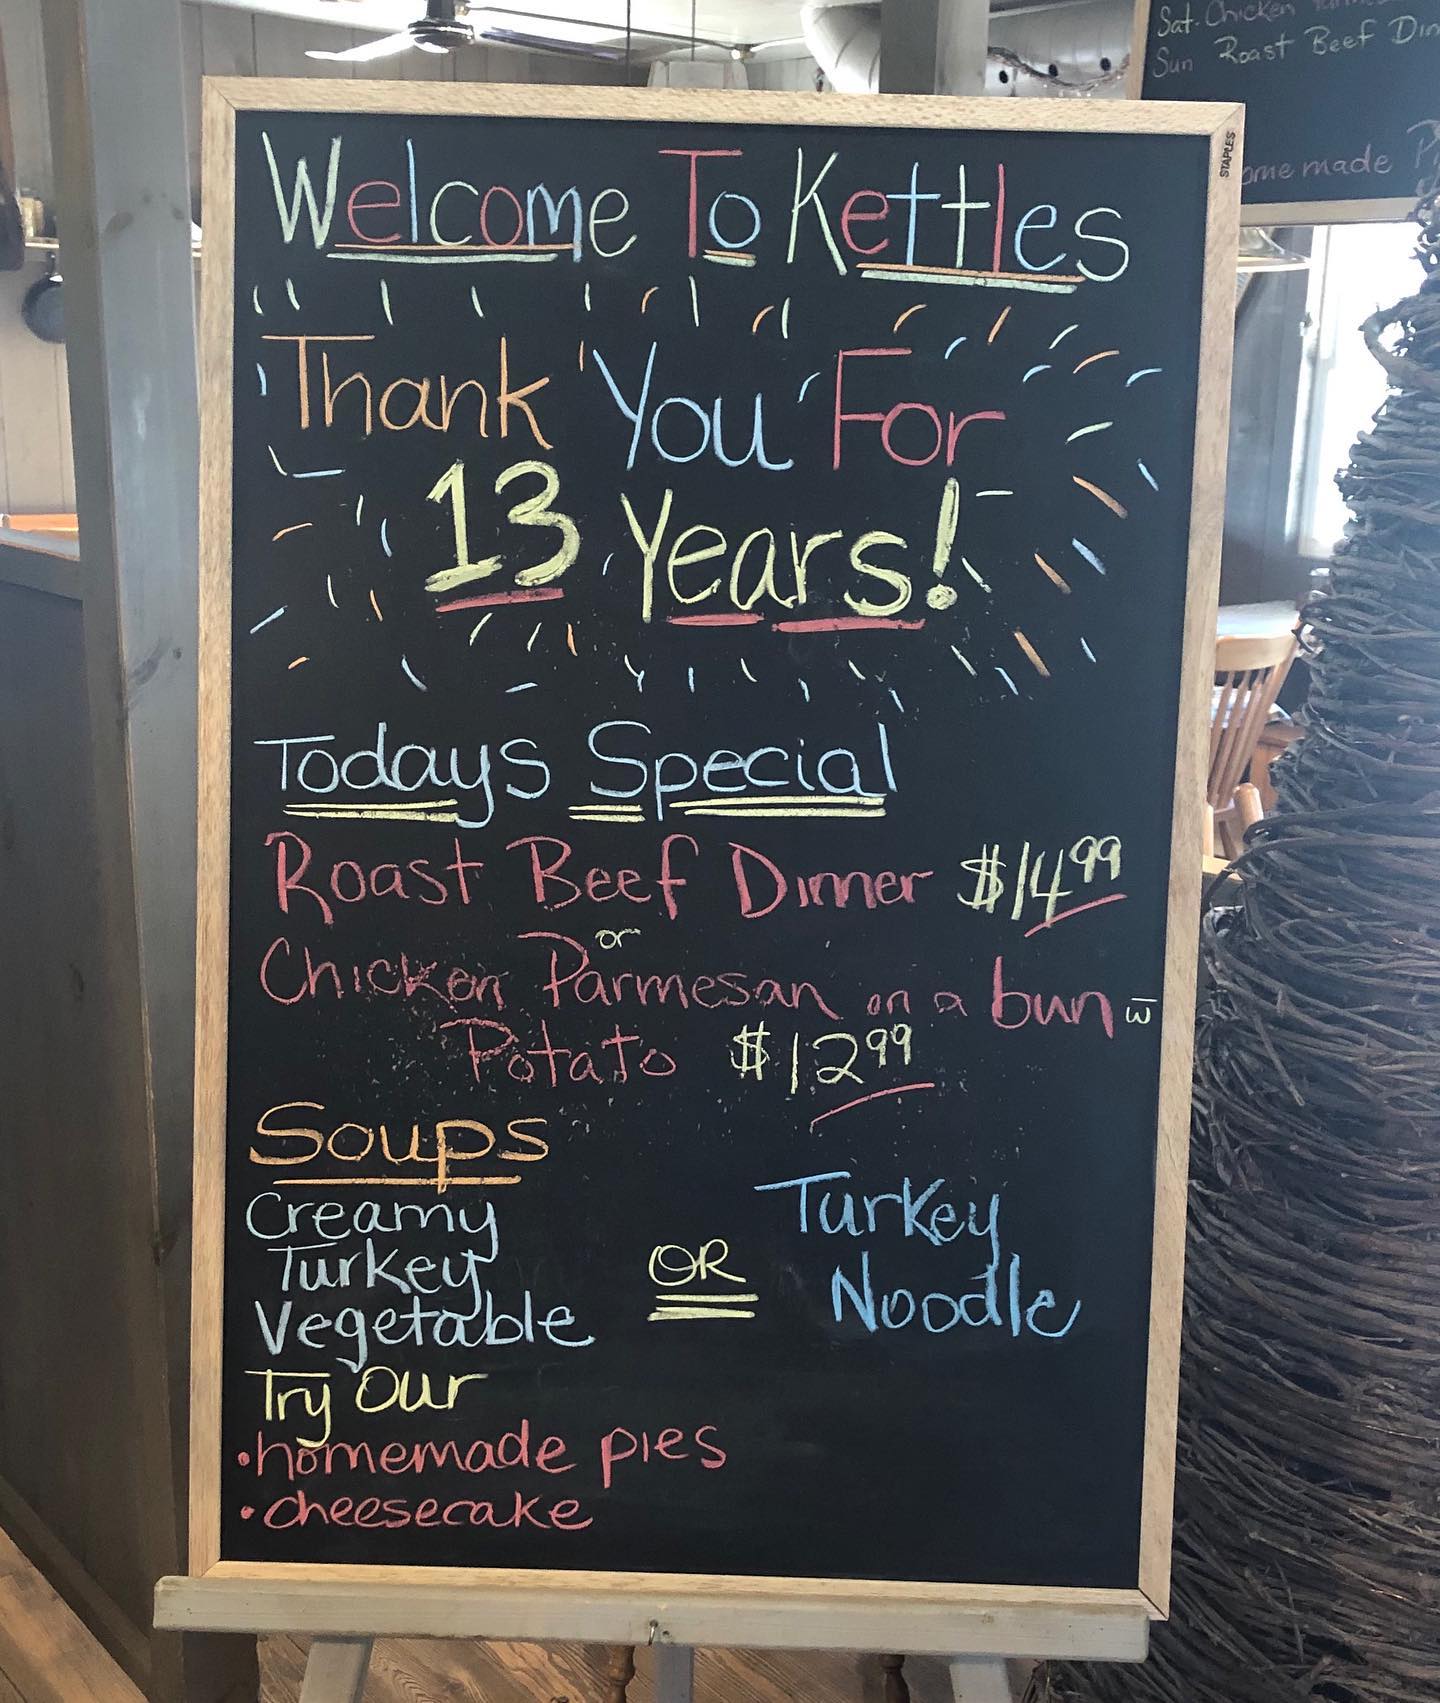 Sat. Chicken
Sun Roast Beef Din
STAPLES
ome made
Welcome To Kettles
Thank You For
13 Years!
Todays Special
Roast Beef Dinner $14.99
or
Chicken Parmesan on a bun w̄
Potato $12.99
Soups
Creamy
Turkey
Vegetable
OR
Turkey
Noodle
Try Our
• homemade pies
• cheesecake